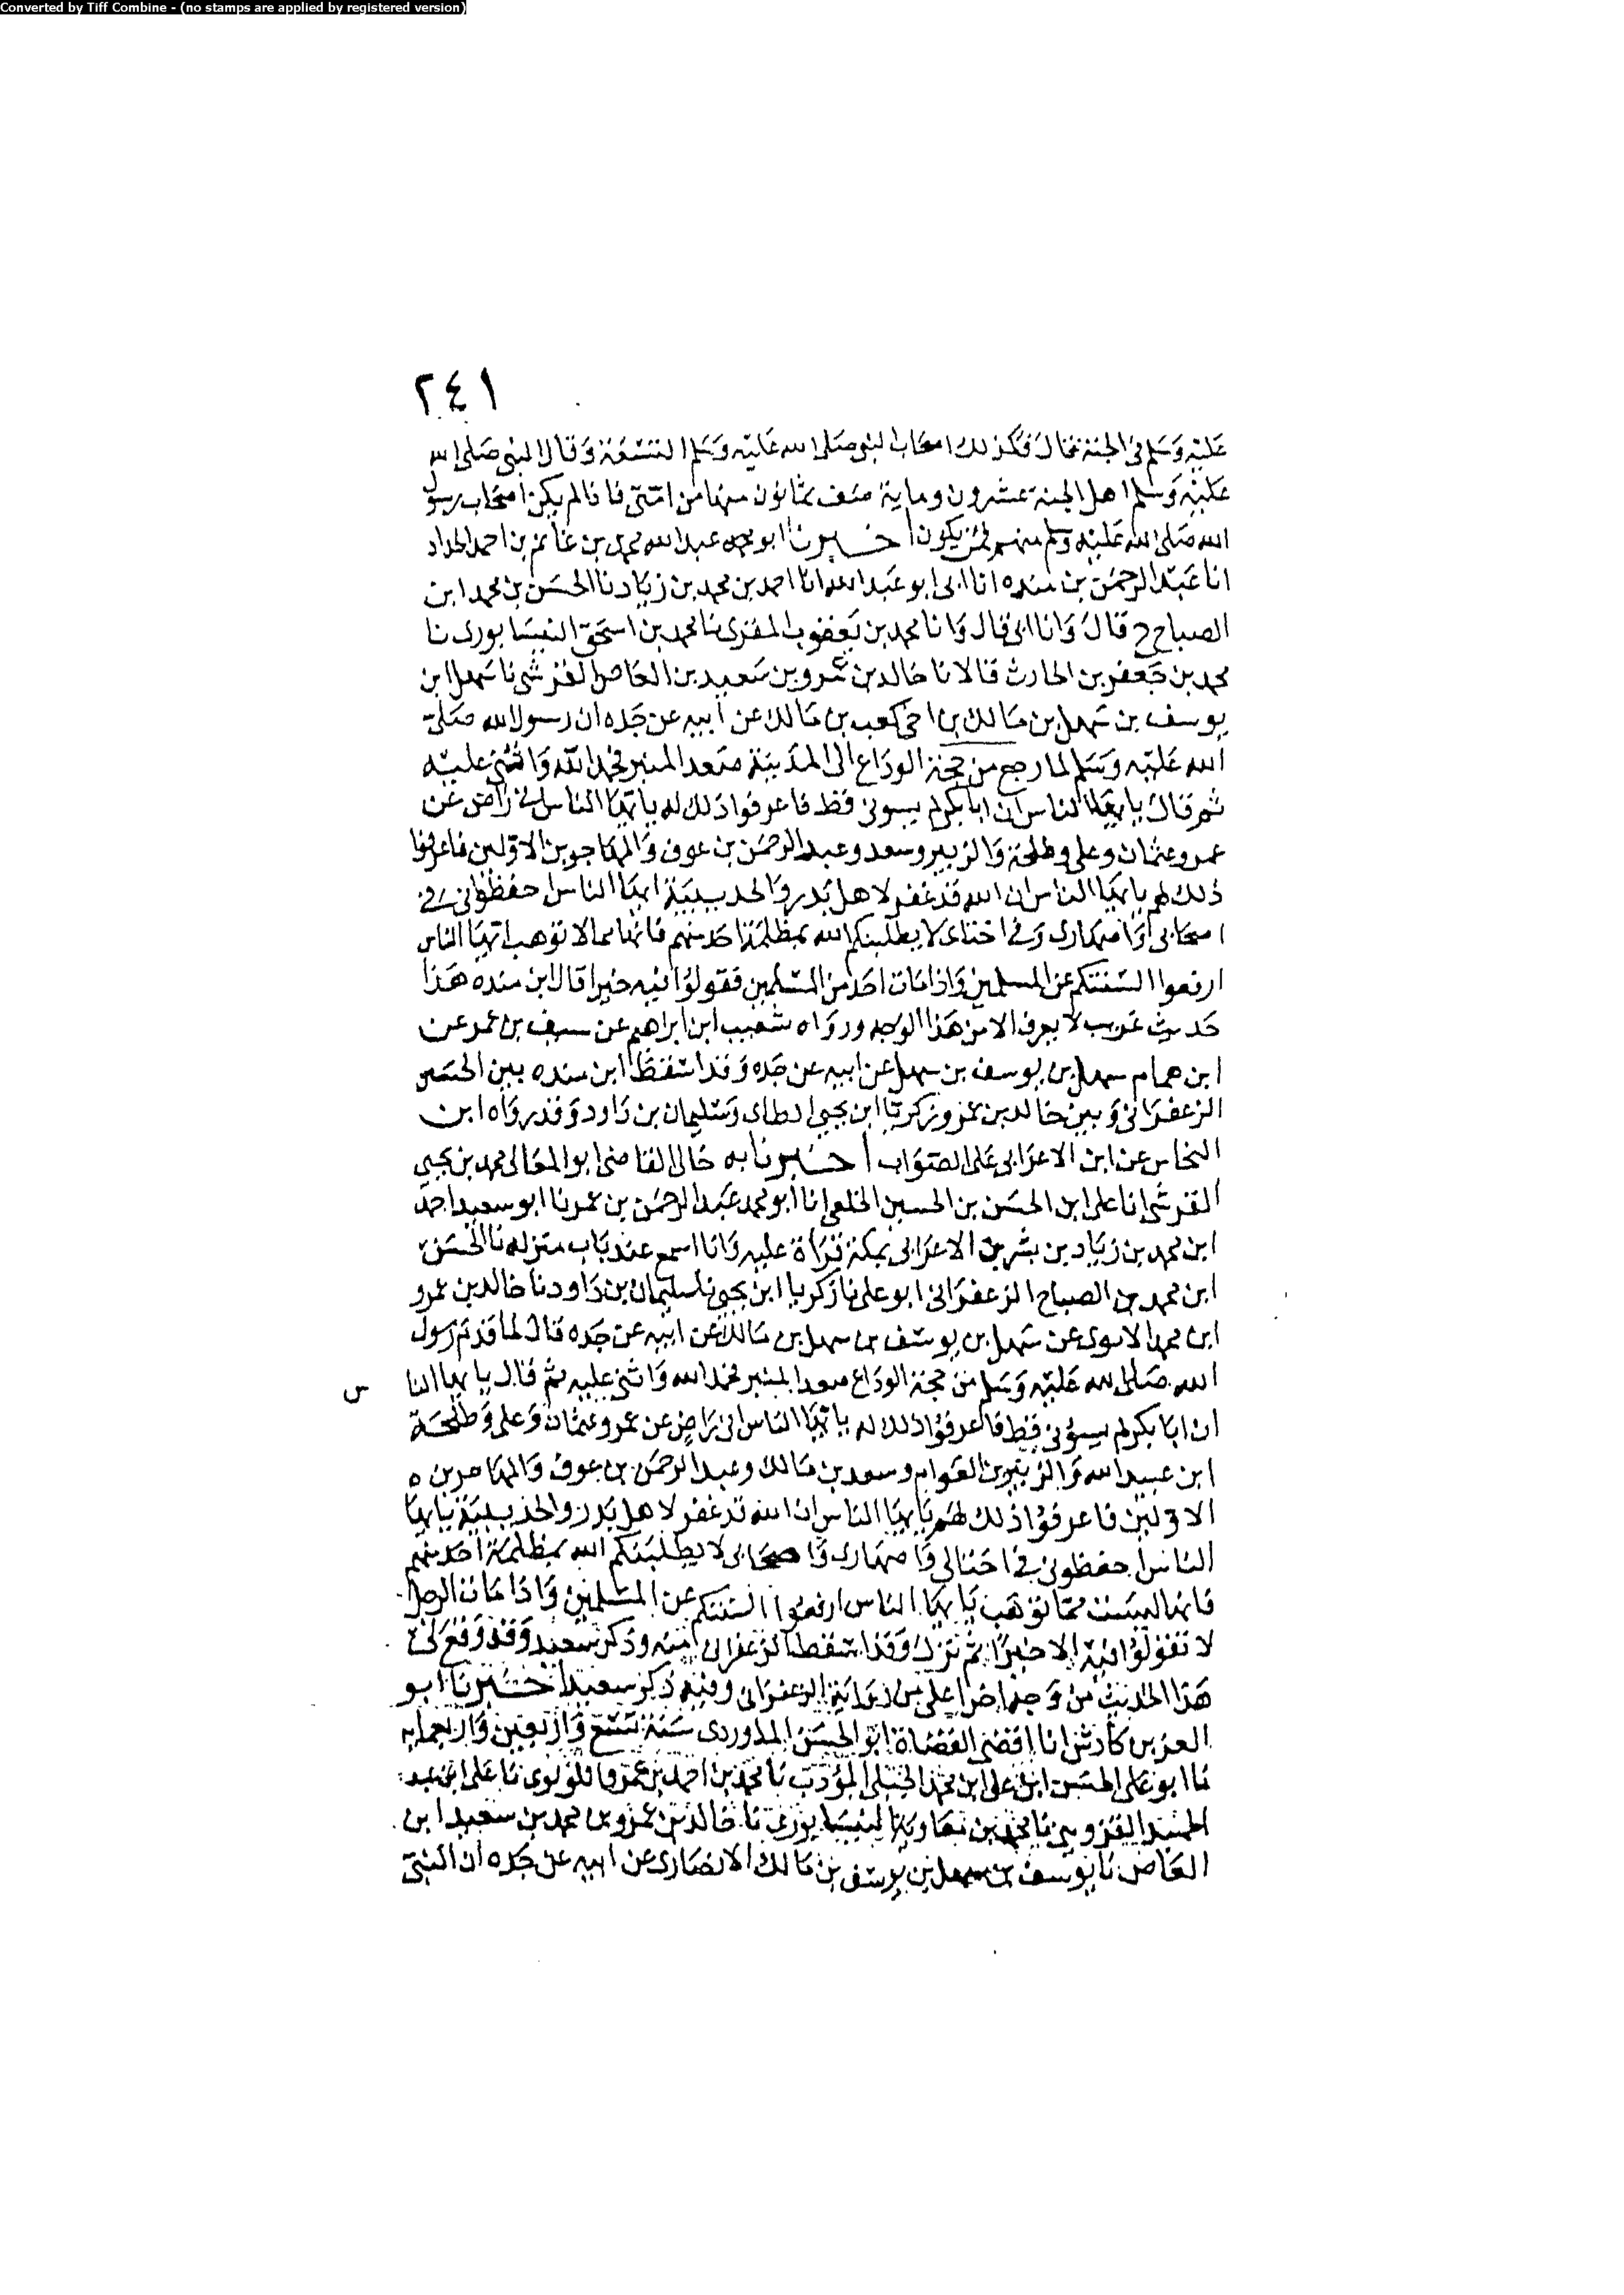 Converted by Tiff Combine - (no stamps are applied by registered version)
٢٤١
عليه وسلم في الجنة فقال فكذلك اصحاب النبي صلى الله عليه وسلم التسعة وقال النبي صلى الله
عليه وسلم اهل الجنة عشرون وماية صنف ثمانون منها من امتي فاذا لم يكن اصحاب رسول
الله صلى الله عليه وسلم منهم فمن يكون اخبرنا ابو محمد عبد الله محمد بن غانم بن احمد الحداد
انا عبد الرحمن بن منده انا ابي ابو عبد الله انا احمد بن محمد بن زياد نا الحسن بن محمد ابن
الصباح ح قال وانا ابي قال وانا محمد بن يعقوب المقري نا محمد بن اسحق النيسابوري نا
محمد بن جعفر بن الحارث قالا نا خالد بن عمرو بن سعيد بن العاص القرشي نا سهل ابن
يوسف بن سهل بن مالك بن اخي كعب بن مالك عن ابيه عن جده ان رسول الله صلى
الله عليه وسلم لما رجع من حجة الوداع الى المدينة صعد المنبر فحمد الله واثنى عليه
ثم قال يا يها الناس ان ابا بكر لم يسوني قط فاعرفوا ذلك له يا يها الناس اني راض عن
عمر وعثمان وعلي وطلحة والزبير وسعد وعبد الرحمن بن عوف والمهاجرين الاولين فاعرفوا
ذلك لهم يا يها الناس ان الله قد غفر لاهل بدر والحديبية ايها الناس احفظوني في
اصحابي واصهاري وفي اختاني لا يطلبنكم الله بمظلمة احد منهم فانها مما لا توهب ايها الناس
ارفعوا السنتكم عن المسلمين واذا مات احد من المسلمين فقولوا فيه خيرا قال ابن منده هذا
حديث غريب لا يعرف الا من هذا الوجه ورواه شعيب ابن ابراهيم عن سيف بن عمر عن
ابن همام سهل بن يوسف بن سهل عن ابيه عن جده وقد اسقط ابن منده بين الحسن
الزعفراني وبين خالد بن عمرو زكريا ابن يحيى الطاي وسليمان بن داود وقد رواه ابن
النحاس عن ابن الاعرابي على الصواب اخبرنا به خالي القاضي ابو المعالي محمد بن يحيى
القرشي انا علي ابن الحسن بن الحسين الخلعي انا ابو محمد عبد الرحمن بن عمر نا ابو سعيد احمد
ابن محمد بن زياد بن بشر بن الاعرابي بمكة قراة عليه وانا اسمع عند باب منزله نا الحسن
ابن محمد بن الصباح الزعفراني ابو علي نا زكريا ابن يحيى نا سليمان بن داود نا خالد بن عمرو
ابن محمد الاموي عن سهل بن يوسف بن سهل بن مالك عن ابيه عن جده قال لما قدم رسول
الله صلى الله عليه وسلم من حجة الوداع صعد المنبر فحمد الله واثنى عليه ثم قال يا يها النا
س
ان ابا بكر لم يسؤني قط فاعرفوا ذلك له يا يها الناس اني راض عن عمر وعثمان وعلي وطلحة
ابن عبيد الله والزبير بن العوام وسعد بن مالك وعبد الرحمن بن عوف والمهاجرين
الاولين فاعرفوا ذلك لهم يا يها الناس ان الله قد غفر لاهل بدر والحديبية يا يها
الناس احفظوني في اختاني واصهاري واصحابي لا يطلبنكم الله بمظلمة احد منهم
فانها ليست مما توهب يا يها الناس ارفعوا السنتكم عن المسلمين واذا مات الرجل
لا تقولوا فيه الا خيرا ثم نزل وقد اسقط الزعفراني منه وذكر سعيد وقد وقع لي
هذا الحديث من وجه اخر اعلى من رواية الزعفراني وفيه ذكر سعيد اخبرنا ابو
العز بن كادش انا اقضى القضاة ابو الحسن الماوردي سنة تسع واربعين واربعماية
نا ابو علي الحسن ابن علي ابن محمد الجبلي المؤدب نا محمد بن احمد بن عمرو اللولوي نا علي ابن عبد
الحميد القزويني نا محمد بن معاوية النيسابوري نا خالد بن عمرو بن محمد بن سعيد ابن
العاص نا يوسف بن سهل بن يوسف بن مالك الانصاري عن ابيه عن جده ان النبي